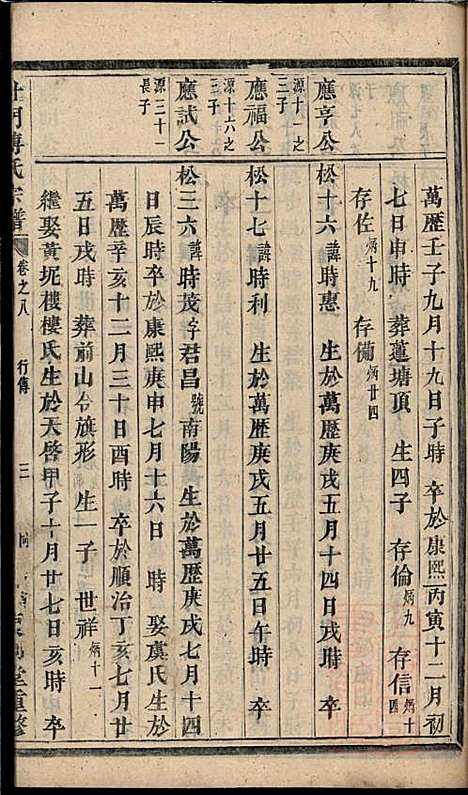 萬歷壬子九月十九日子時 卒於康熙丙寅十二月初
七日申時 葬蓮塘頂 生四子 存倫炳九 存信炳十四
存佐炳十九 存備炳廿四
應亨公 源十一之三子 松十六 諱時惠 生於萬歷庚戌五月十四日戌時 卒
應福公 源十六之三子 松十七 諱時利 生於萬歷庚戌五月廿五日午時 卒
應試公 源三十一長子 松三六 諱時茂 字君昌 號南陽 生於萬歷庚戌七月十四
日辰時 卒於康熙庚申七月十六日 時 娶虞氏生於
萬歷辛亥十二月三十日酉時 卒於順治丁亥七月廿
五日戌時 葬前山台旗形 生一子 世祥炳十一
繼娶黃坭樓樓氏生於天啓甲子十月廿七日亥時 卒
杜門傅氏宗譜 卷之八 行傳 三 堂重修